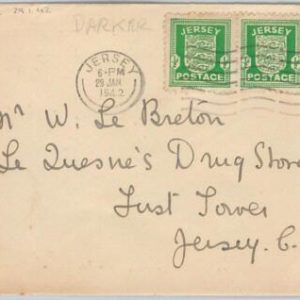 29.1.42
DARKER
JERSEY
6-PM
29 JAN
1942
JERSEY
POSTAGE
JERSEY
POSTAGE
Mr W. Le Breton
Le Quesne's Drug Store
Just Tower
Jersey. C.